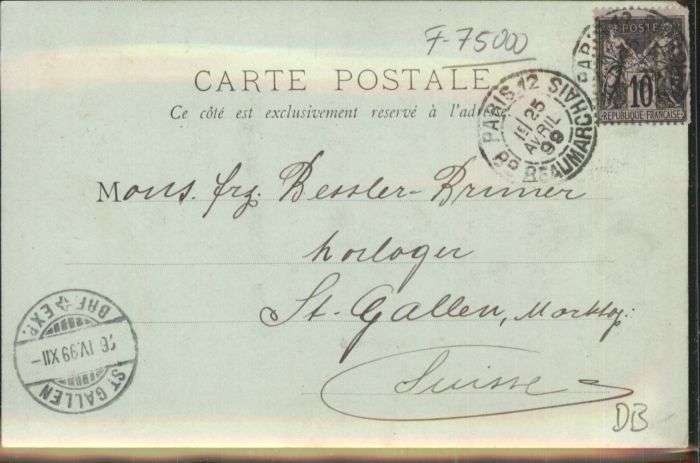 F-75000
CARTE POSTALE
Ce côté est exclusivement reservé à l'ad
POSTE
10
REPUBLIQUE FRANÇAISE
PARIS 12
PARIS 12 Bd BEAUMARCHAIS
25
AVRIL
99
Mons. frz. Bessler-Brunner
horloger
St. Gallen,
Suisse
BRF EXP.
26 IV.99 XII-
ST GALLEN
DB